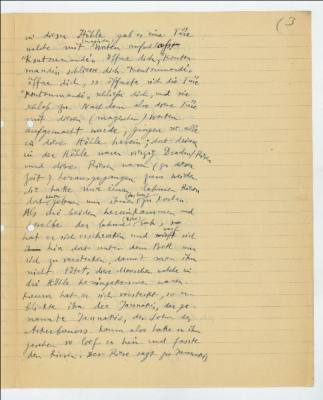 (3
in dieser Höhle gab es eine Türe
welche mit Worten aufgeht
"Kontrumandi, öffne dich, Kontru
mandi schliesse dich. Kontrumandi
öffne dich, so öffnete sich die Türe
Kontrumandi schliesse dich, und sie
schloss zu. Nachdem also diese Türe
mit diesen (magischen) Worten
aufgemacht wurde, gingen sie alle
in diese Höhle herein; dort drinnen
in der Höhle waren vierzig Draken/Riesen
und diese Riesen waren zu dieser
Zeit herausgegangen zum
Sie hatte nur einen lahmen Riesen
dort gelassen um ihnen zu kochen.
Als die beiden hereinkommen und
welche der lahme sah, so
hat er sich erschrocken und sich
hin dort unter dem Bett um
sich zu verstecken, damit man ihn
nicht tötet, diese Menschen welche in
die Höhle hereingekommen waren.
Kaum hat er sich versteckt, so er
blickte ihn der Jannakis, der ge
nannte Jannakis, der Sohn des
Ackerbauers. Kaum also hatte er ihn
gesehen so lief er hin und fasste
den Riesen. Der Riese sagt zu Jannakis